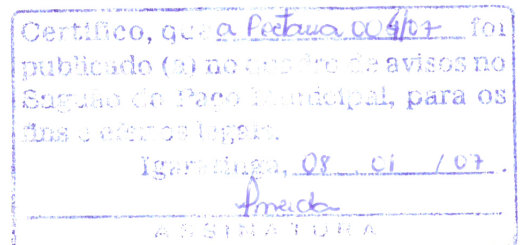 Certifico, que a Portaria 004/07 foi
publicado (a) no quadro de avisos no
Saguão do Paço Municipal, para os
fins e efeitos legais.
Igaratinga, 08 01 / 07.
ASSINATURA